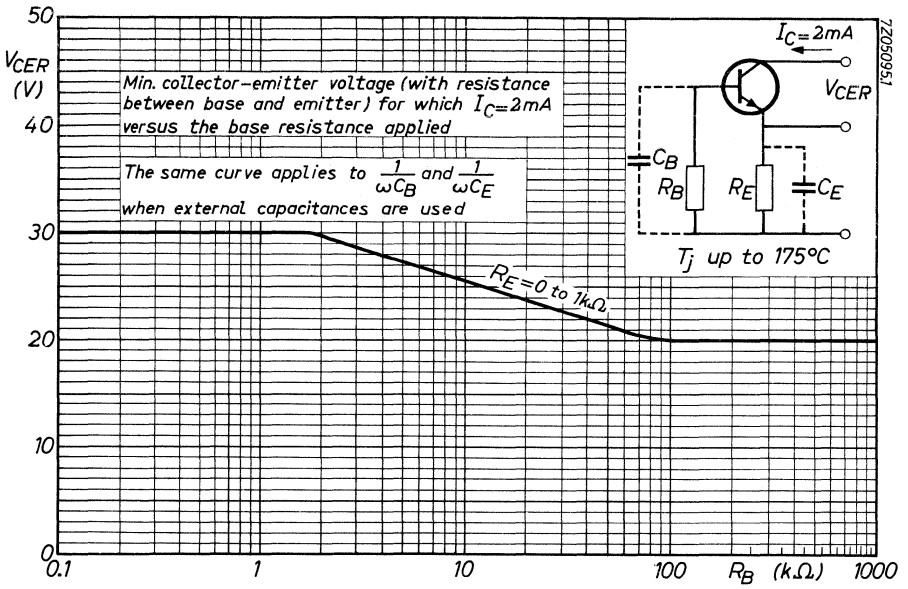 50
V_CER
(V)
40
30
20
10
0
Min. collector-emitter voltage (with resistance
between base and emitter) for which I_C=2mA
versus the base resistance applied
The same curve applies to 1/ωC_B and 1/ωC_E
when external capacitances are used
R_E=0 to 1kΩ
I_C=2mA
V_CER
C_B
R_B
R_E
C_E
T_j up to 175°C
7Z05095.1
0.1
1
10
100
R_B (kΩ)
1000